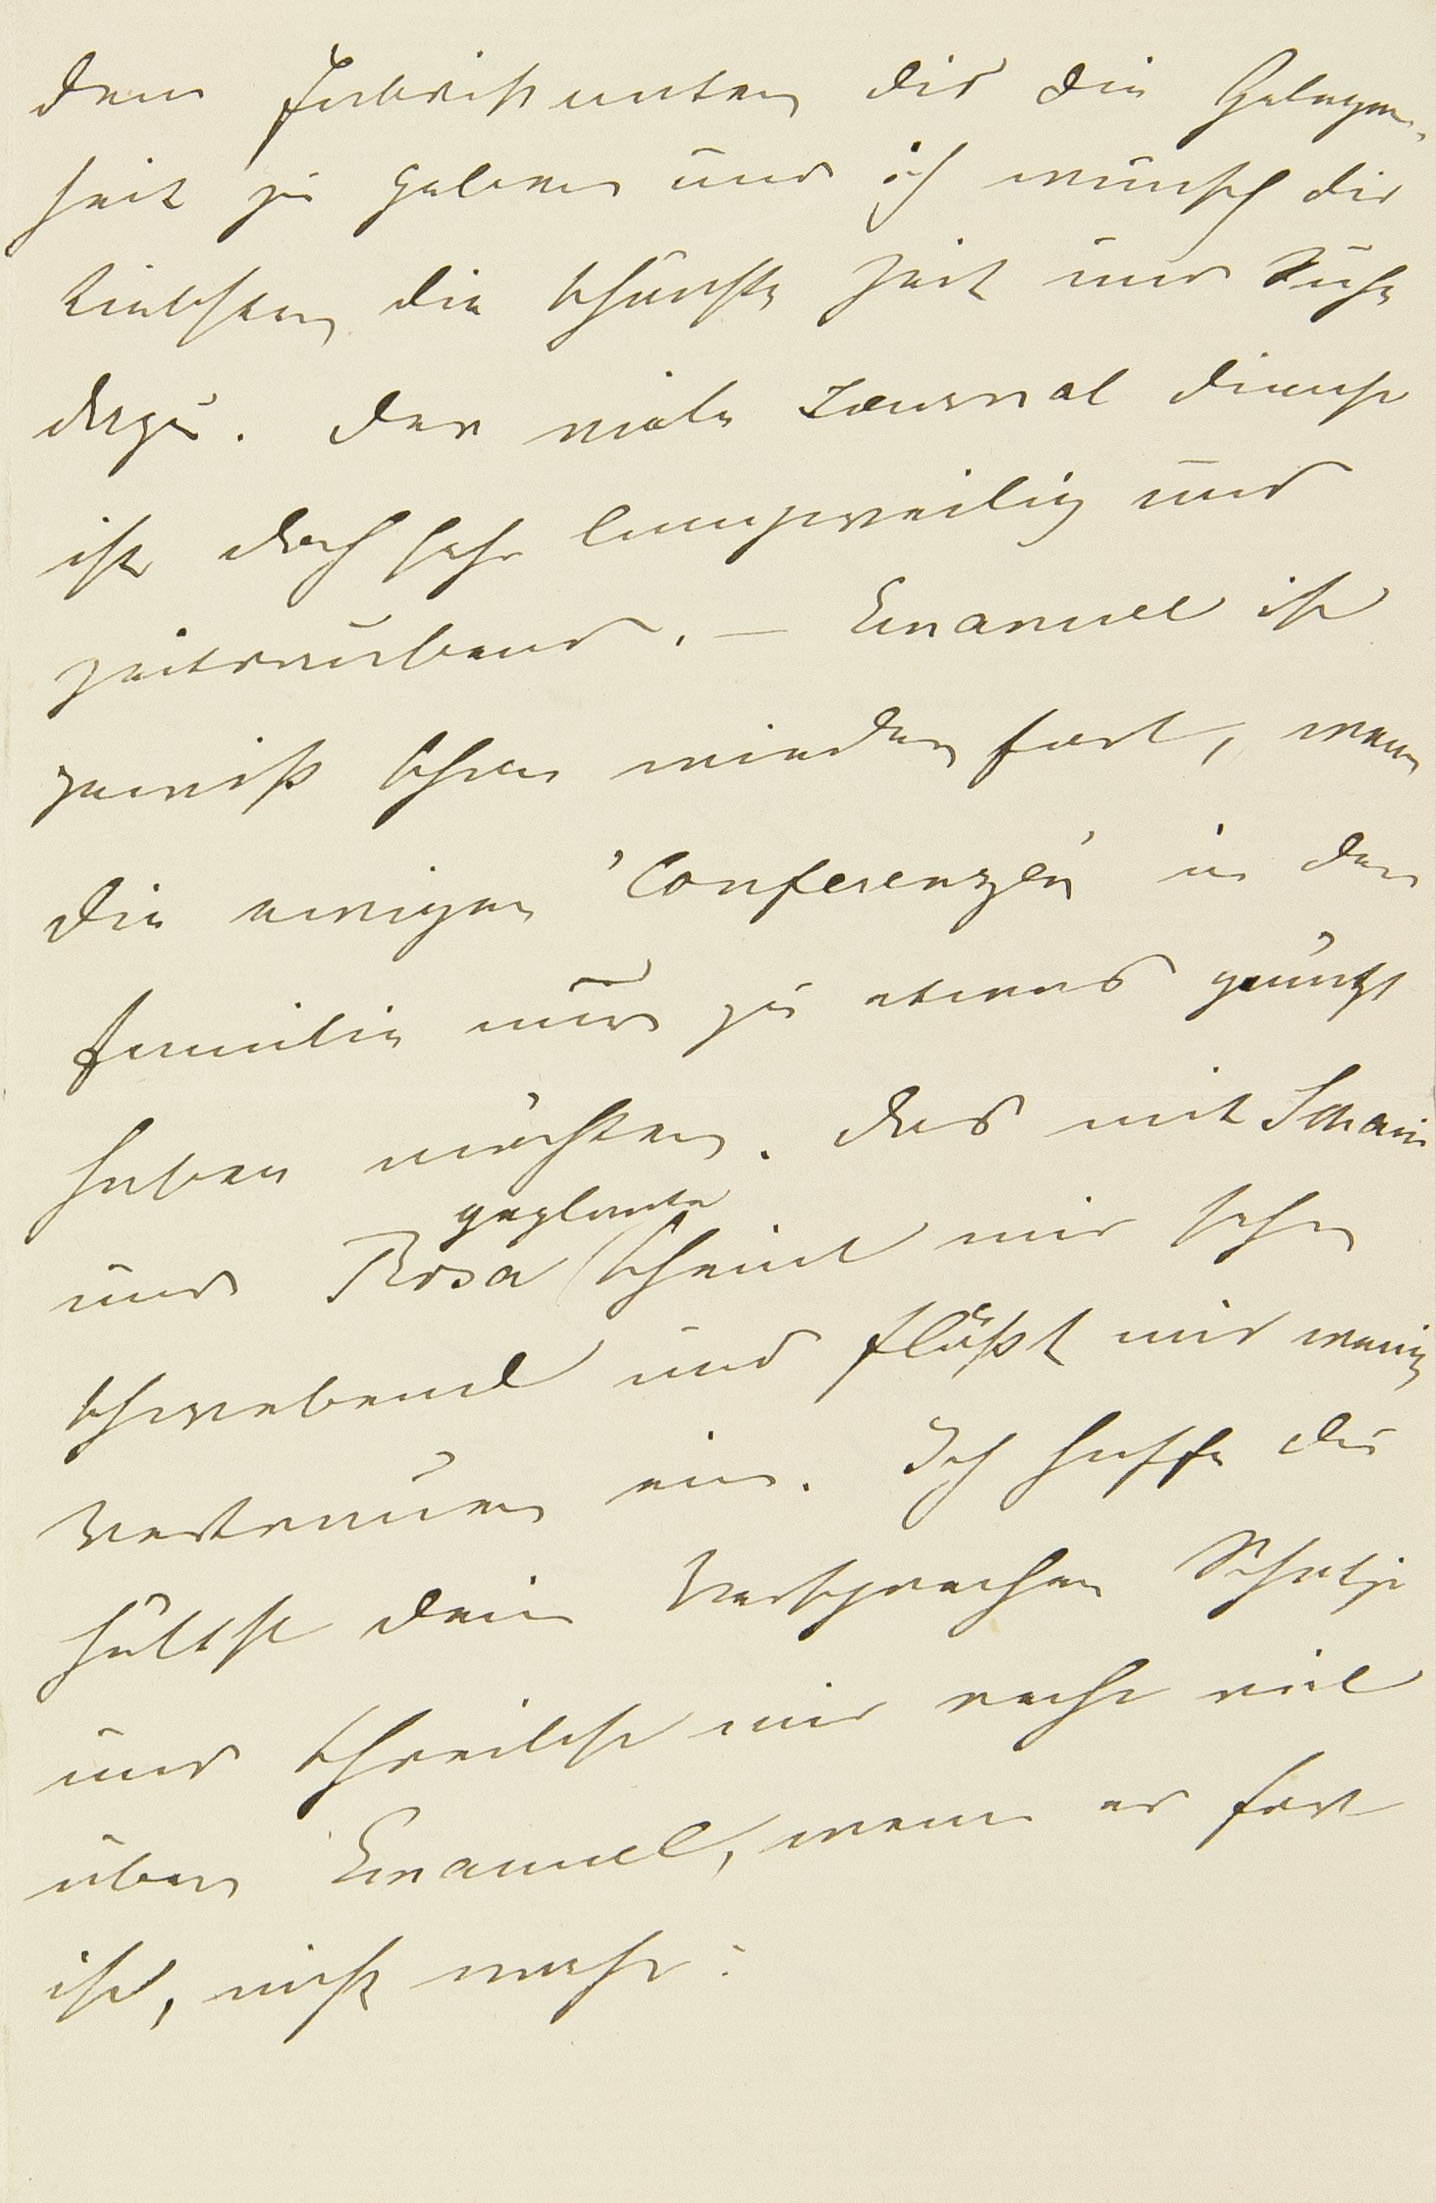 dem Fabrikanten dir die Gelegen-
heit zu geben und ich wünsch dir
Liebsten die schönste Zeit und Ruhe
dazu. Der viele Journal dienst
ist doch sehr langweilig und
zeitraubend. — Emanuel ist
gewiß schon wieder fort, wenn
die ewigen 'Conferenzen' in der
Familie nur zu etwas genützt
haben möchten. Das mit
und Rosa geplante scheint mir sehr
schwebend und flößt mir wenig
Vertrauen ein. Ich hoffe du
hältst dein Versprechen
und schreibst mir recht viel
über Emanuel, wenn er fort
ist, nicht wahr?